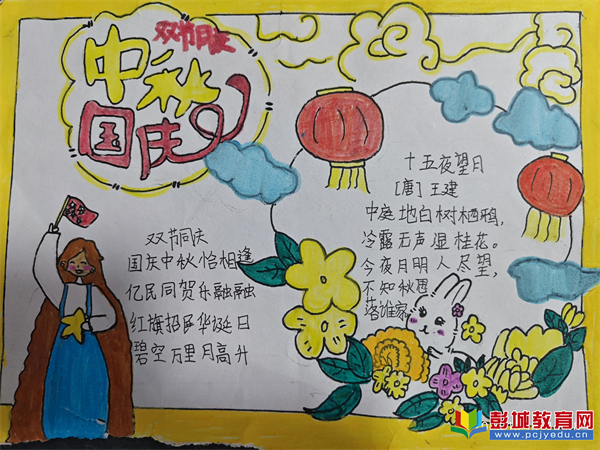 双节同庆
中秋
国庆
十五夜望月
[唐]王建
中庭地白树栖鸦,
冷露无声湿桂花。
今夜月明人尽望,
不知秋思
落谁家
双节同庆
国庆中秋恰相逢
亿民同贺乐融融
红旗招展华诞日
碧空万里月高升
彭城教育网
www.pcjyedu.com